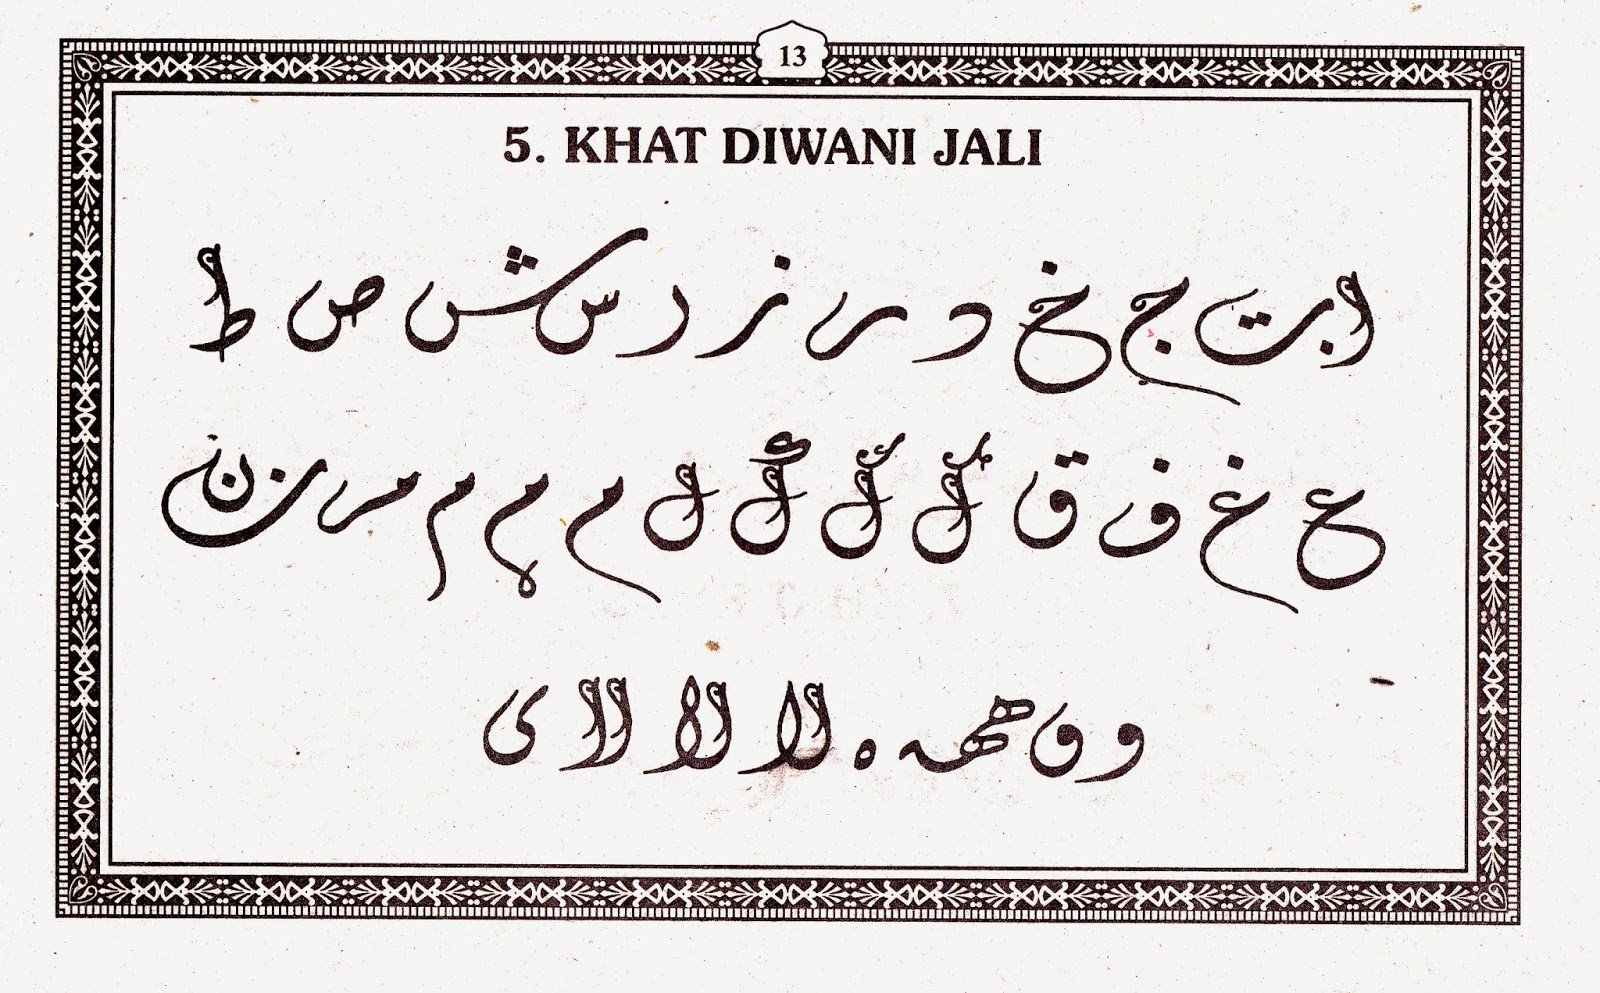 13
5. KHAT DIWANI JALI
ا ب ت ج خ د ر ز ر س ش ص ط
ع غ ف ق ك ك ك ل م م م م ن ن ن
و و ه ه ه ه لا لا لا ى